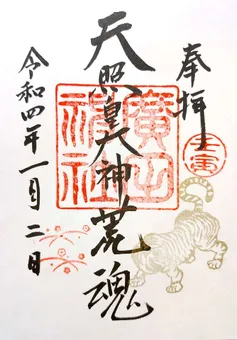 奉拝
壬寅
天照皇大神荒魂
廣田神社
令和四年一月二日